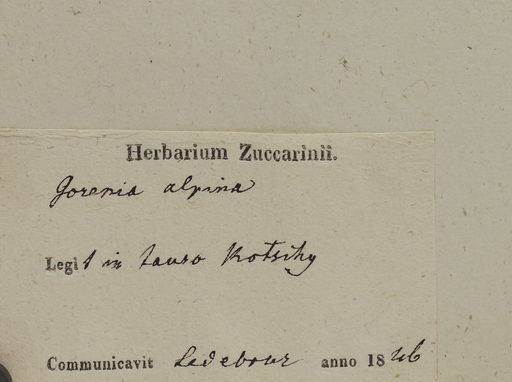 Herbarium Zuccarinii.
Gorenia alpina
Legit in tauro Kotschy
Communicavit Ledebour anno 1846